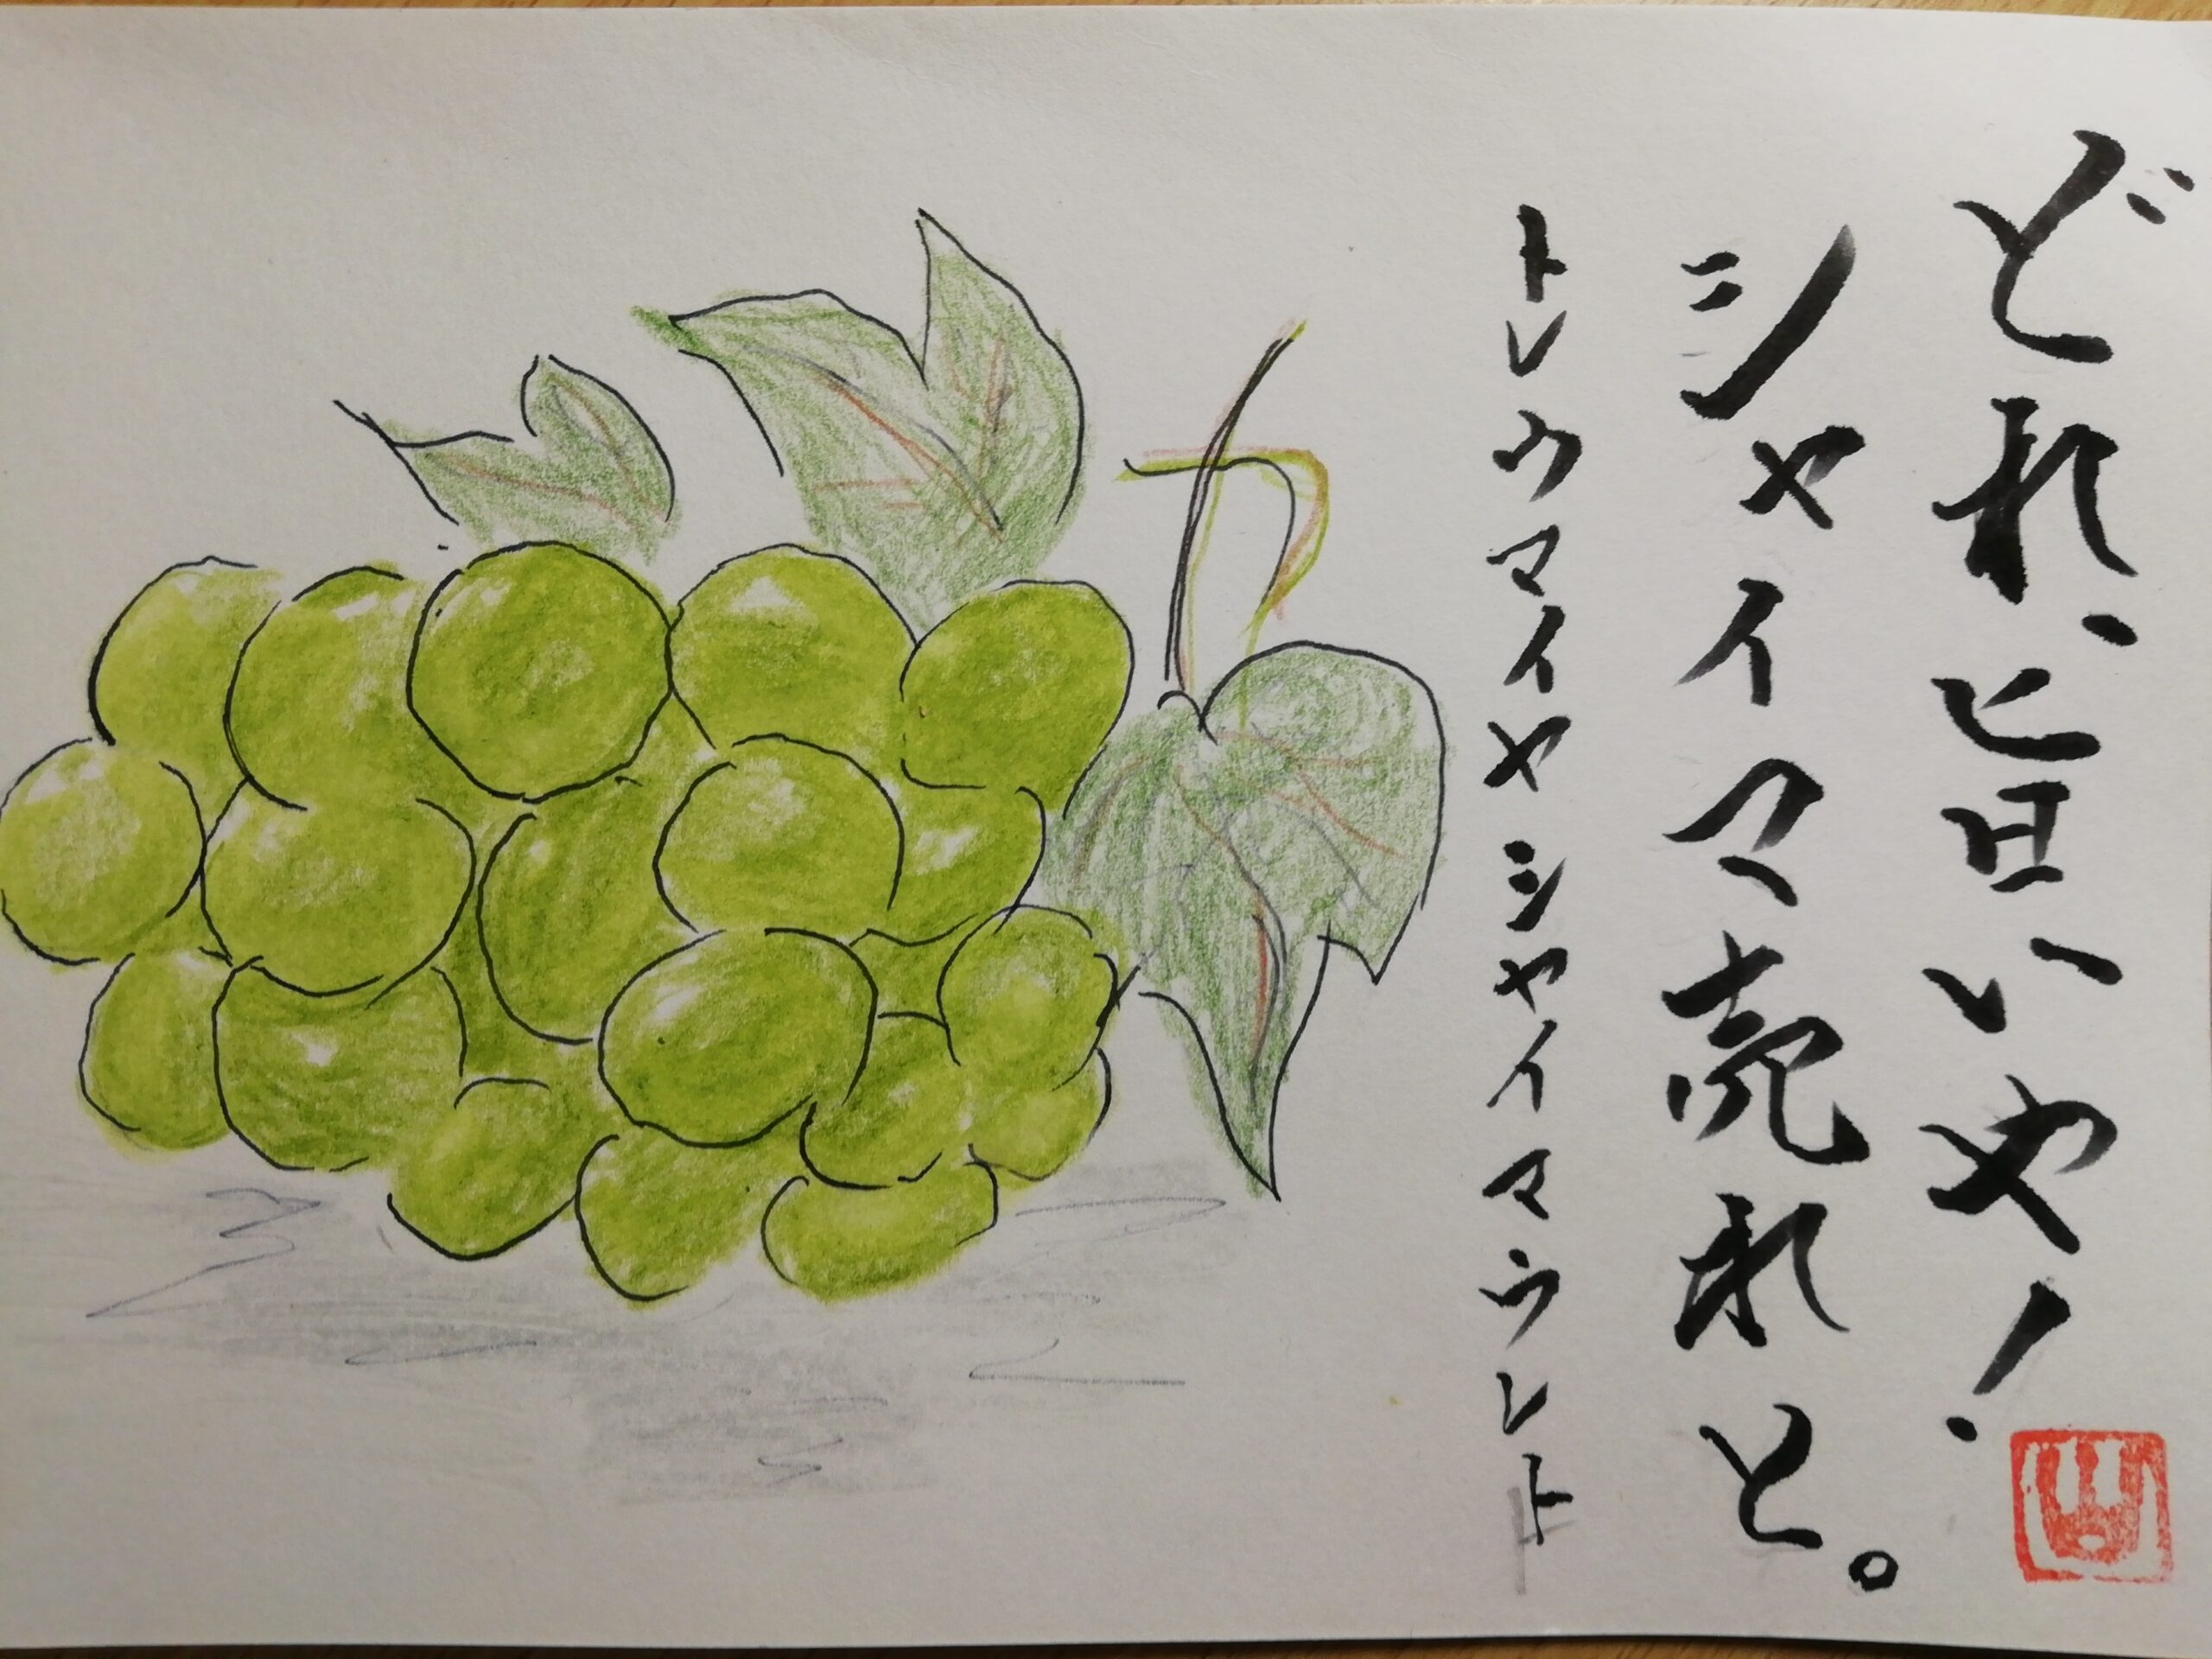 どれ、旨いや!
シャイマ売れと。
トレウマイヤシヤイマウレト